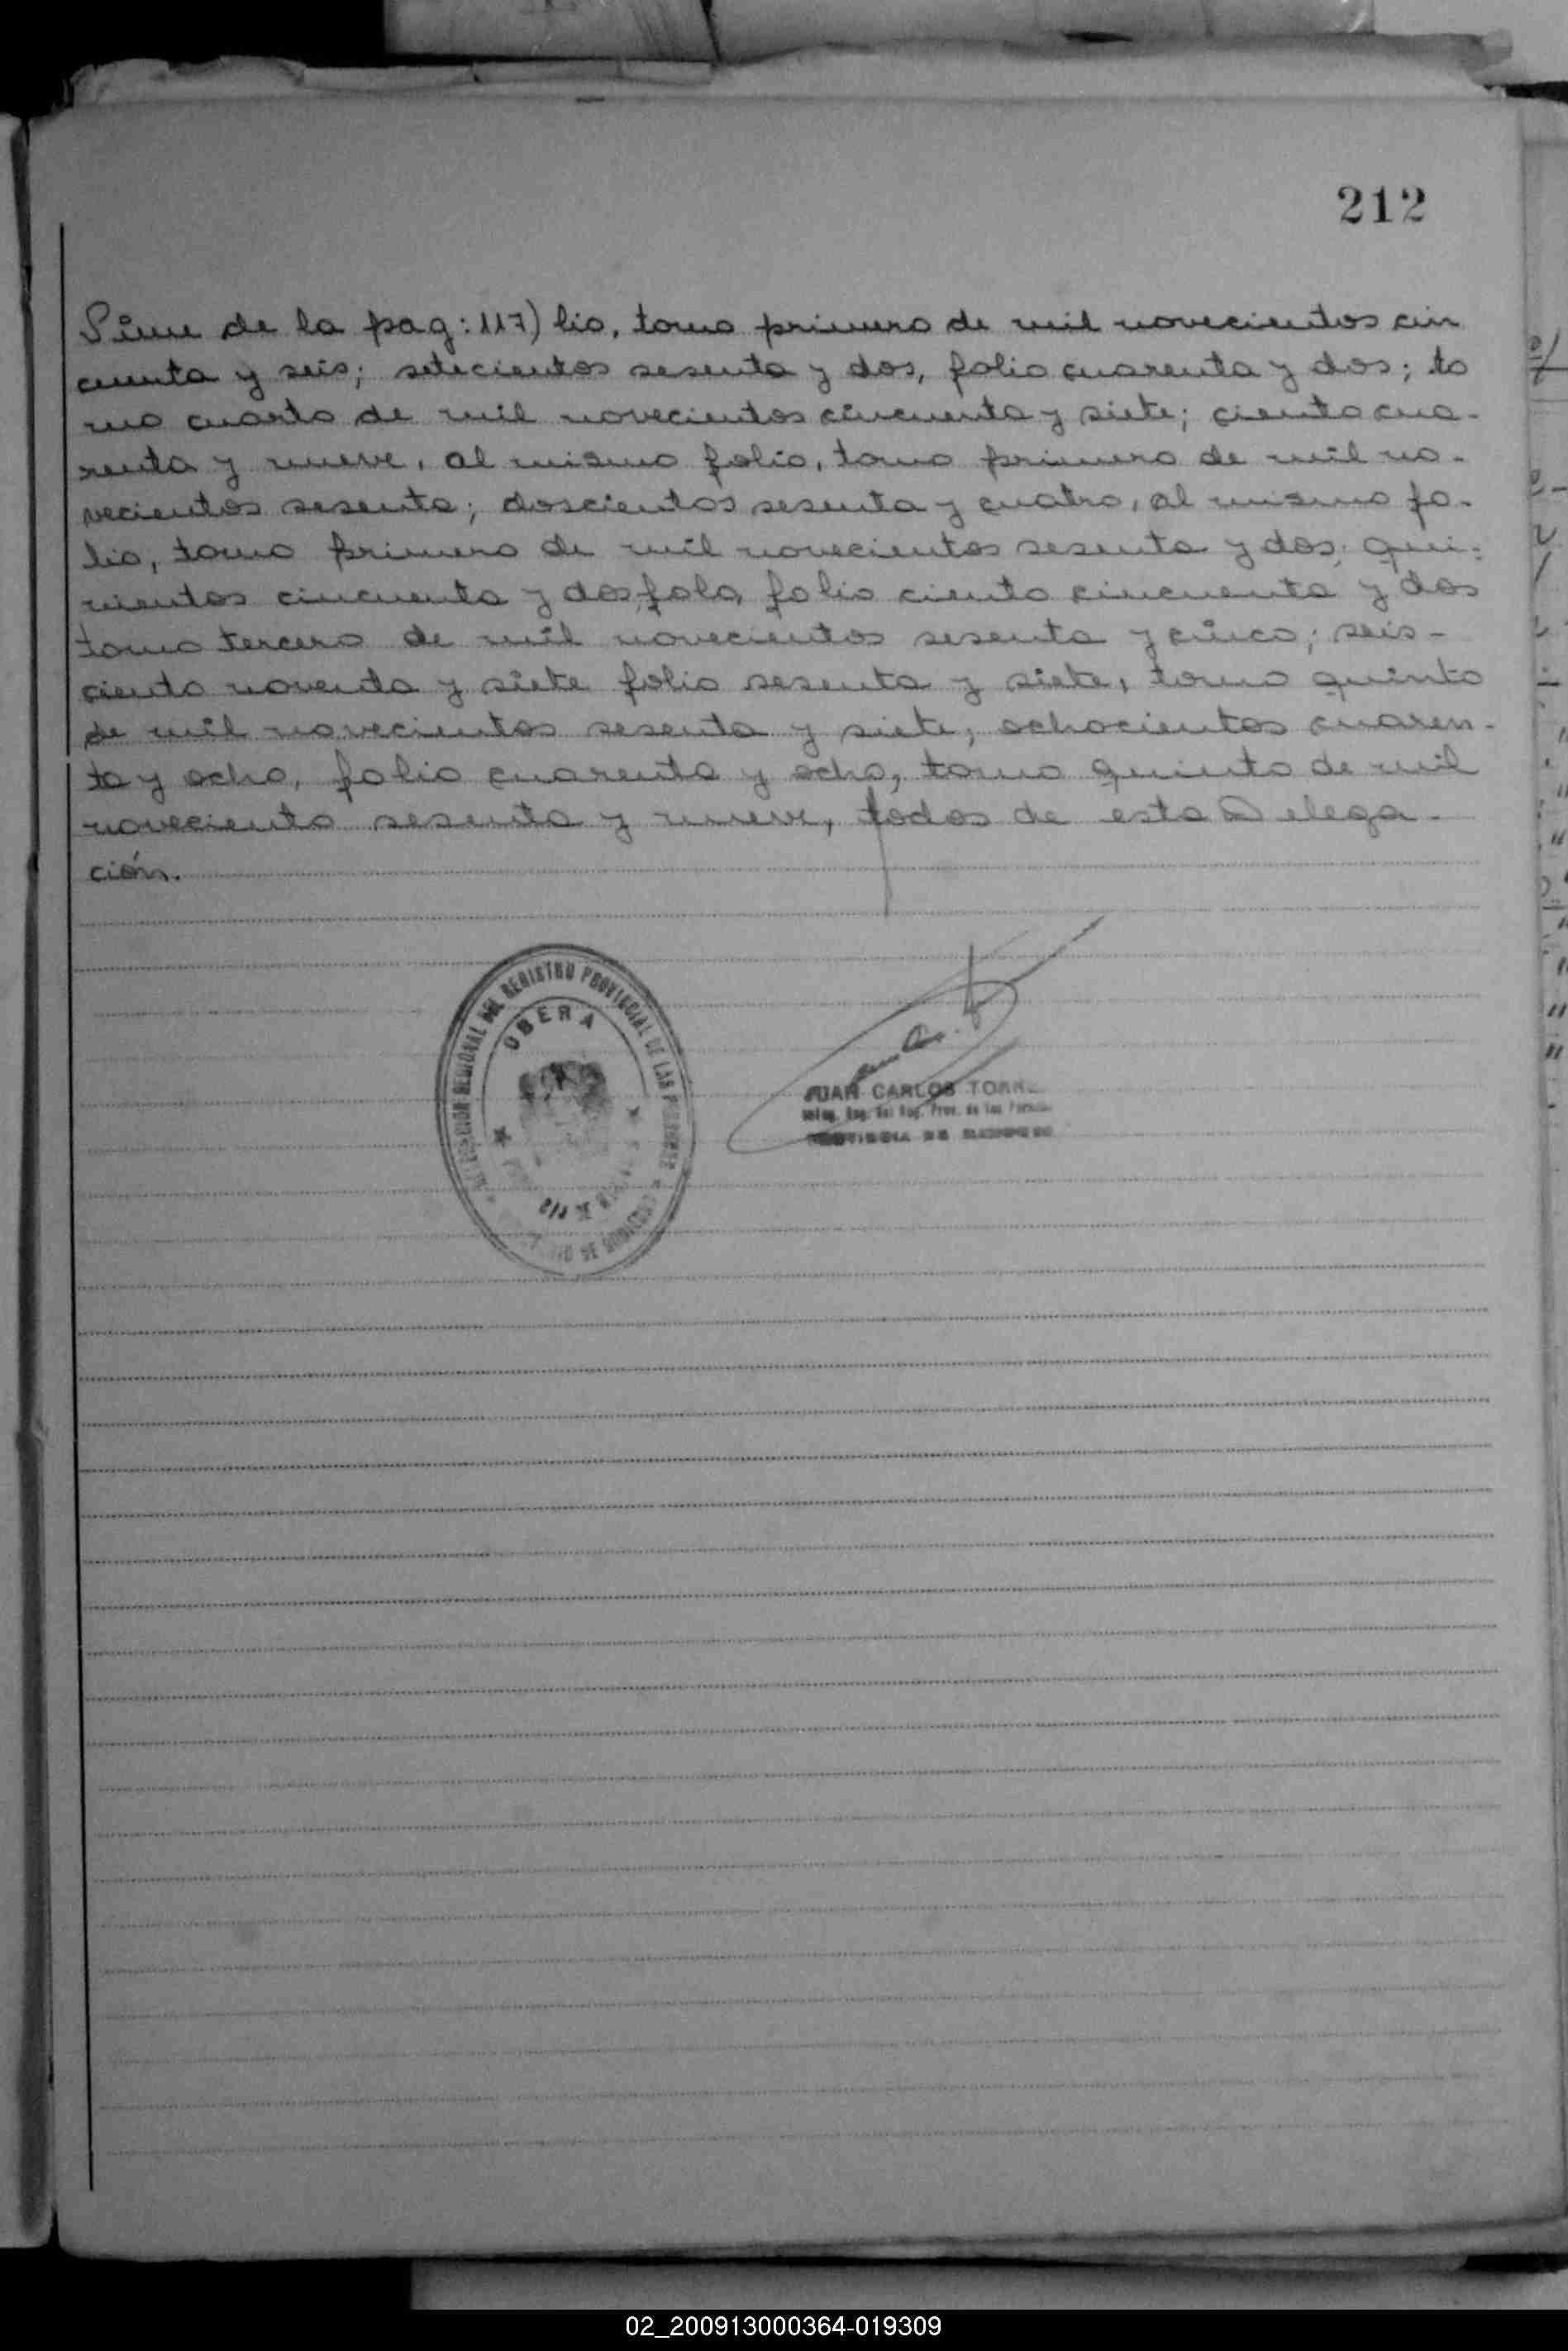 212
Sime de la pag: 117) lio, tomo primero de mil novecientos cin
cuenta y seis; setecientos sesenta y dos, folio cuarenta y dos; to
mo cuarto de mil novecientos cincuenta y siete; ciento cua-
renta y nueve, al mismo folio, tomo primero de mil no-
vecientos sesenta; doscientos sesenta y cuatro, al mismo fo-
lio, tomo primero de mil novecientos sesenta y dos; qui-
nientos cincuenta y dos, folo, folio ciento cincuenta y dos
tomo tercero de mil novecientos sesenta y cinco; seis-
ciento noventa y siete folio sesenta y siete, tomo quinto
de mil novecientos sesenta y siete, ochocientos cuaren-
ta y ocho, folio cuarenta y ocho, tomo quinto de mil
noveciento sesenta y nueve, todos de esta Delega-
ción.
REGIONAL DEL REGISTRO PROVINCIAL DE LAS
OBERA
JUAN CARLOS
02_200913000364-019309